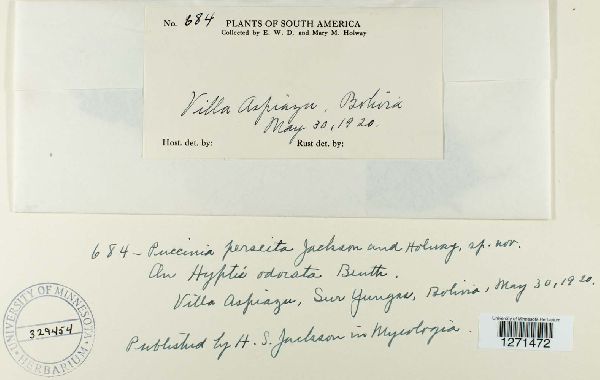 No. 684 PLANTS OF SOUTH AMERICA
Collected by E. W. D. and Mary M. Holway
Villa Aspiazu, Bolivia
May 30, 1920.
Host. det. by: Rust det. by:
684 - Puccinia perscita Jackson and Holway, sp. nov.
On Hyptis odorata Benth.
Villa Aspiazu, Sur Yungas, Bolivia, May 30, 1920.
Published by H. S. Jackson in Mycologia.
UNIVERSITY OF MINNESOTA
329454
HERBARIUM
University of Minnesota Herbarium
1271472